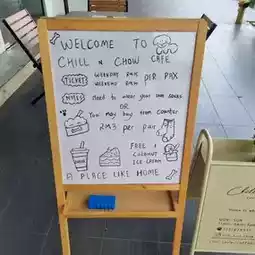 WELCOME TO
CHILL n CHOW CAFE
TICKETS WEEKDAY RM15 PER PAX
WEEKEND
NOTES Need to wear your own socks
OR
You may buy from counter
RM3 per pair
FREE
ICE CREAM
A PLACE LIKE HOME